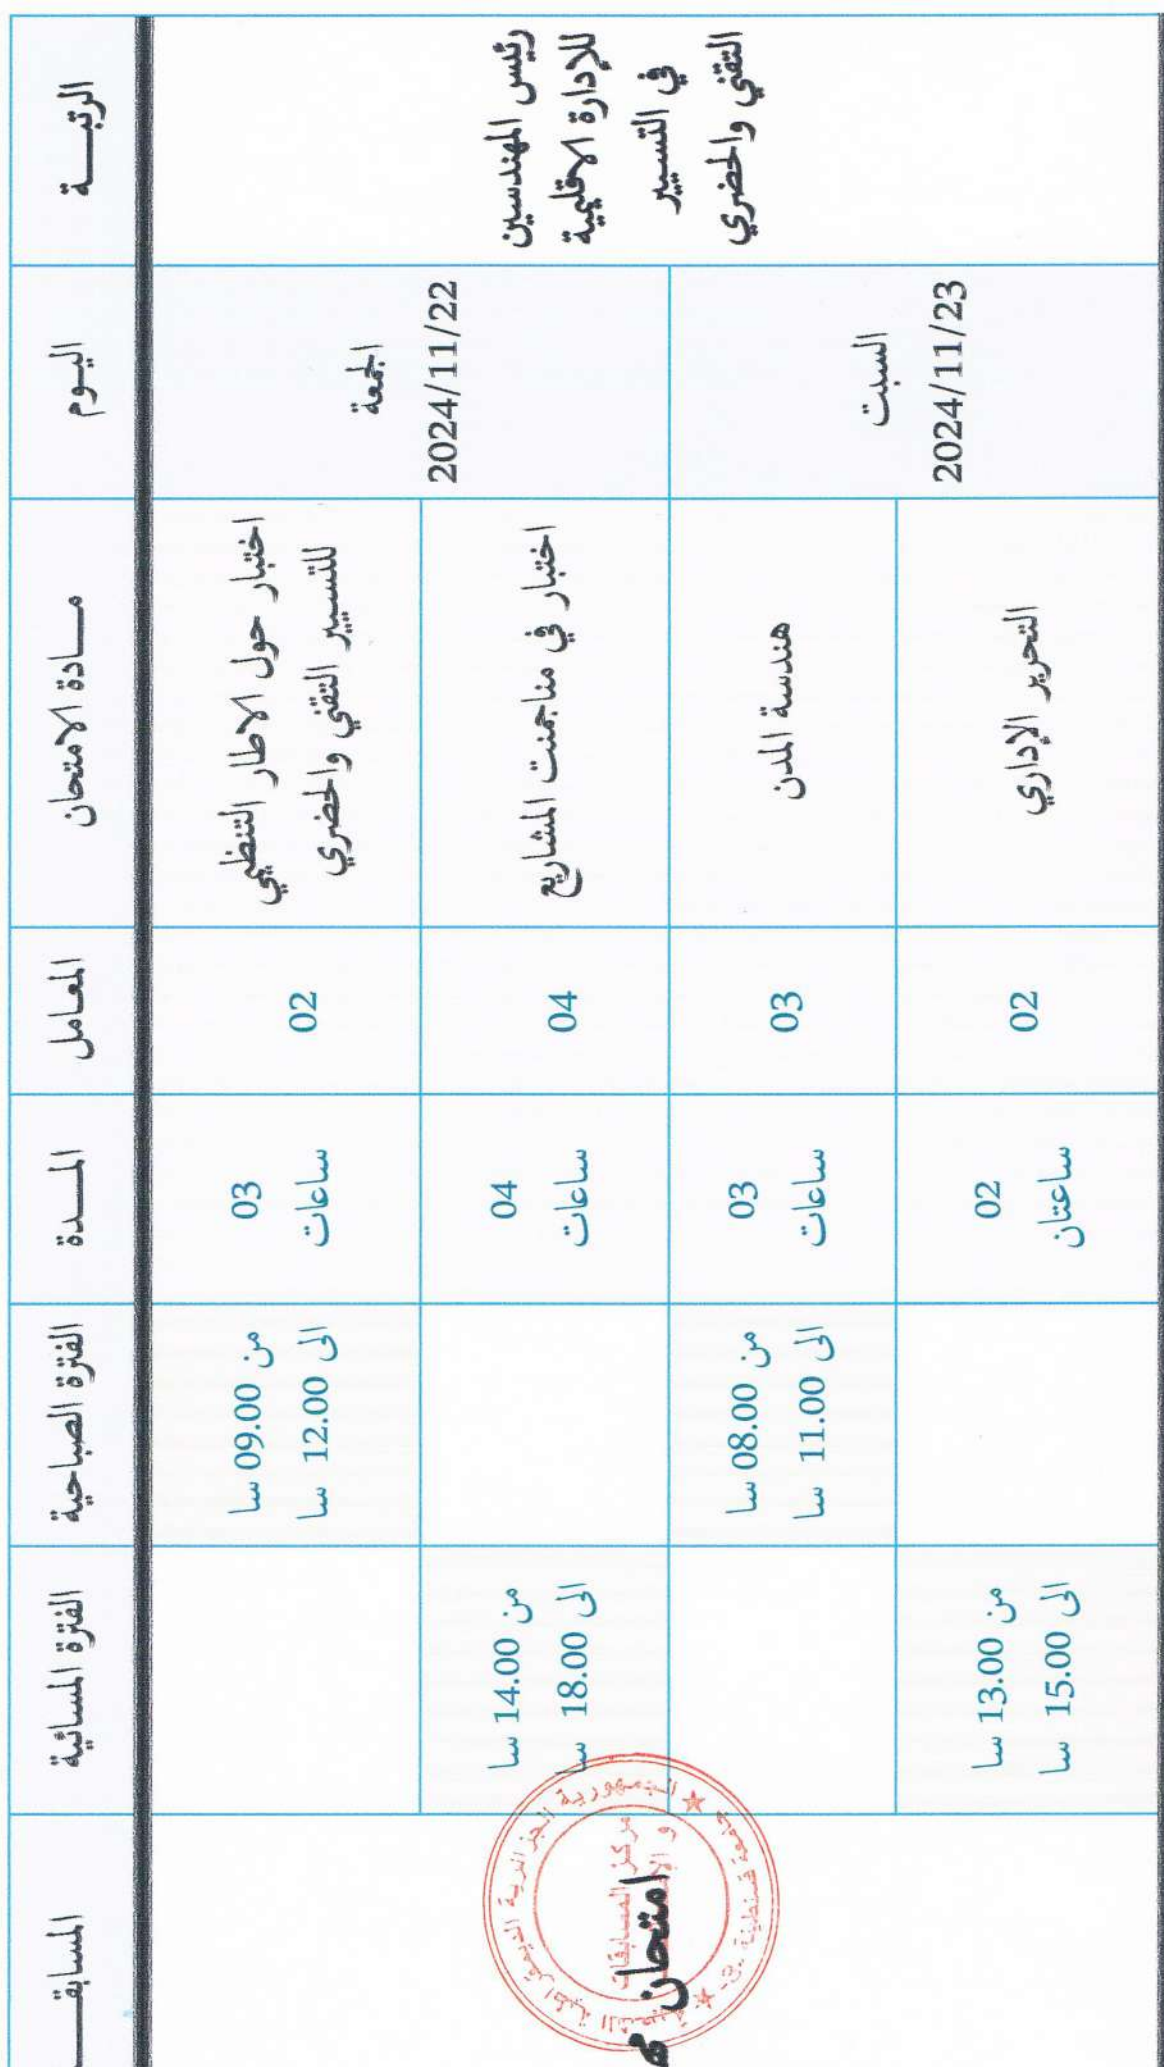 الرتبـــــة
اليـوم
مـــادة الامتحان
المعامل
المـــدة
الفترة الصباحية
الفترة المسائية
رئيس المهندسين
للإدارة الاقليمية
في التسيير
التقني والحضري
الجمعة
2024/11/22
اختبار حول الاطار التنظيمي
للتسيير التقني والحضري
02
03
ساعات
من 09.00 سا
الى 12.00 سا
اختبار في مناجمنت المشاريع
04
04
ساعات
من 14.00 سا
الى 18.00 سا
السبت
2024/11/23
هندسة المدن
03
03
ساعات
من 08.00 سا
الى 11.00 سا
التحرير الإداري
02
02
ساعتان
من 13.00 سا
الى 15.00 سا
امتحان
الجمهورية الجزائرية الديمقراطية الشعبية
مركز المسابقات